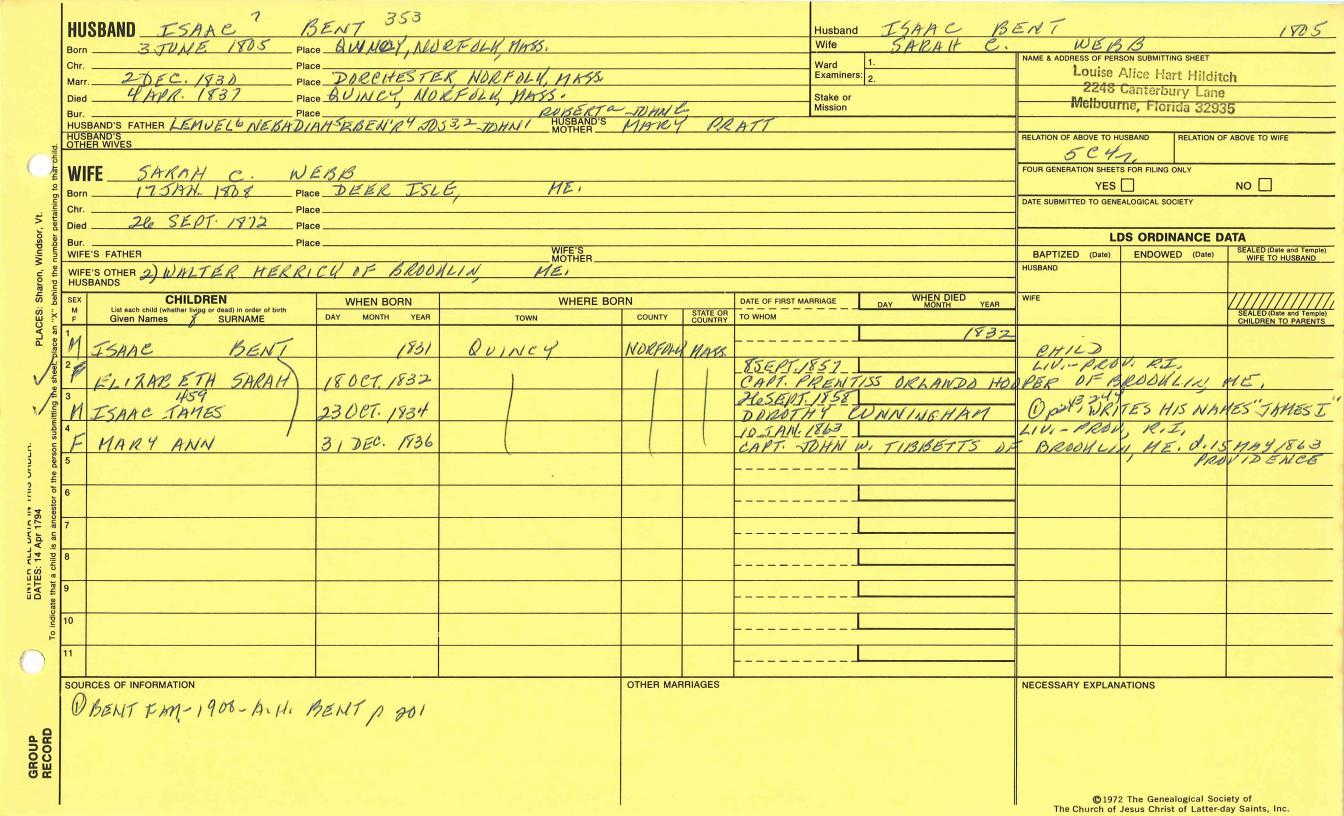 HUSBAND ISAAC 7 BENT 353
Born 3 JUNE 1805 Place QUINCY, NORFOLK, MASS.
Chr. Place
Marr. 2 DEC. 1830 Place DORCHESTER, NORFOLK, MASS
Died 4 APR. 1837 Place QUINCY, NORFOLK, MASS.
Bur. Place ROBERT a JOHN
HUSBAND'S FATHER LEMUEL 6 NEBADIAH 5 EBEN'R 4 JOS 3,2 JOHN 1 HUSBAND'S MOTHER MARY PRATT
HUSBAND'S OTHER WIVES
Husband ISAAC BENT 1805
Wife SARAH C. WEBB
Ward Examiners: 1.
2.
Stake or Mission
NAME & ADDRESS OF PERSON SUBMITTING SHEET
Louise Alice Hart Hilditch
2248 Canterbury Lane
Melbourne, Florida 32935
RELATION OF ABOVE TO HUSBAND RELATION OF ABOVE TO WIFE
5C4r.
FOUR GENERATION SHEETS FOR FILING ONLY
YES NO
DATE SUBMITTED TO GENEALOGICAL SOCIETY
WIFE SARAH C. WEBB
Born 17 JAN. 1808 Place DEER ISLE, ME.
Chr. Place
Died 26 SEPT. 1872 Place
Bur. Place
WIFE'S FATHER WIFE'S MOTHER
WIFE'S OTHER HUSBANDS 2) WALTER HERRICK OF BROOKLIN, ME.
LDS ORDINANCE DATA
BAPTIZED (Date) ENDOWED (Date) SEALED (Date and Temple) WIFE TO HUSBAND
HUSBAND
WIFE
SEALED (Date and Temple) CHILDREN TO PARENTS
SEX M F CHILDREN WHEN BORN WHERE BORN DATE OF FIRST MARRIAGE WHEN DIED
List each child (whether living or dead) in order of birth
Given Names SURNAME DAY MONTH YEAR TOWN COUNTY STATE OR COUNTRY TO WHOM DAY MONTH YEAR
1 1832
M ISAAC BENT 1831 QUINCY NORFOLK MASS CHILD
2 8 SEPT. 1857 LIV. - PROV. R.I.
F ELIZABETH SARAH 18 OCT. 1832 CAPT. PRENTISS ORLANDO HOOPER OF BROOKLIN, ME.
3 459 26 SEPT. 1858
M ISAAC JAMES 23 OCT. 1834 DOROTHY CUNNINGHAM ① p243,244 WRITES HIS NAME "JAMES I"
4 10 JAN. 1863 LIV. - PROV, R.I.
F MARY ANN 31 DEC. 1836 CAPT. JOHN W. TIBBETTS OF BROOKLIN, ME. d. 15 MAY 1863
5 PROVIDENCE
6
7
8
9
10
11
SOURCES OF INFORMATION
① BENT FAM - 1908 - A.H. BENT p 201
OTHER MARRIAGES
NECESSARY EXPLANATIONS
©1972 The Genealogical Society of
The Church of Jesus Christ of Latter-day Saints, Inc.
PLACES: Sharon, Windsor, Vt.
ENTER ALL DATA IN THIS ORDER:
DATES: 14 Apr 1794
To indicate that a child is an ancestor of the person submitting the sheet, place an "X" behind the number pertaining to that child.
GROUP
RECORD